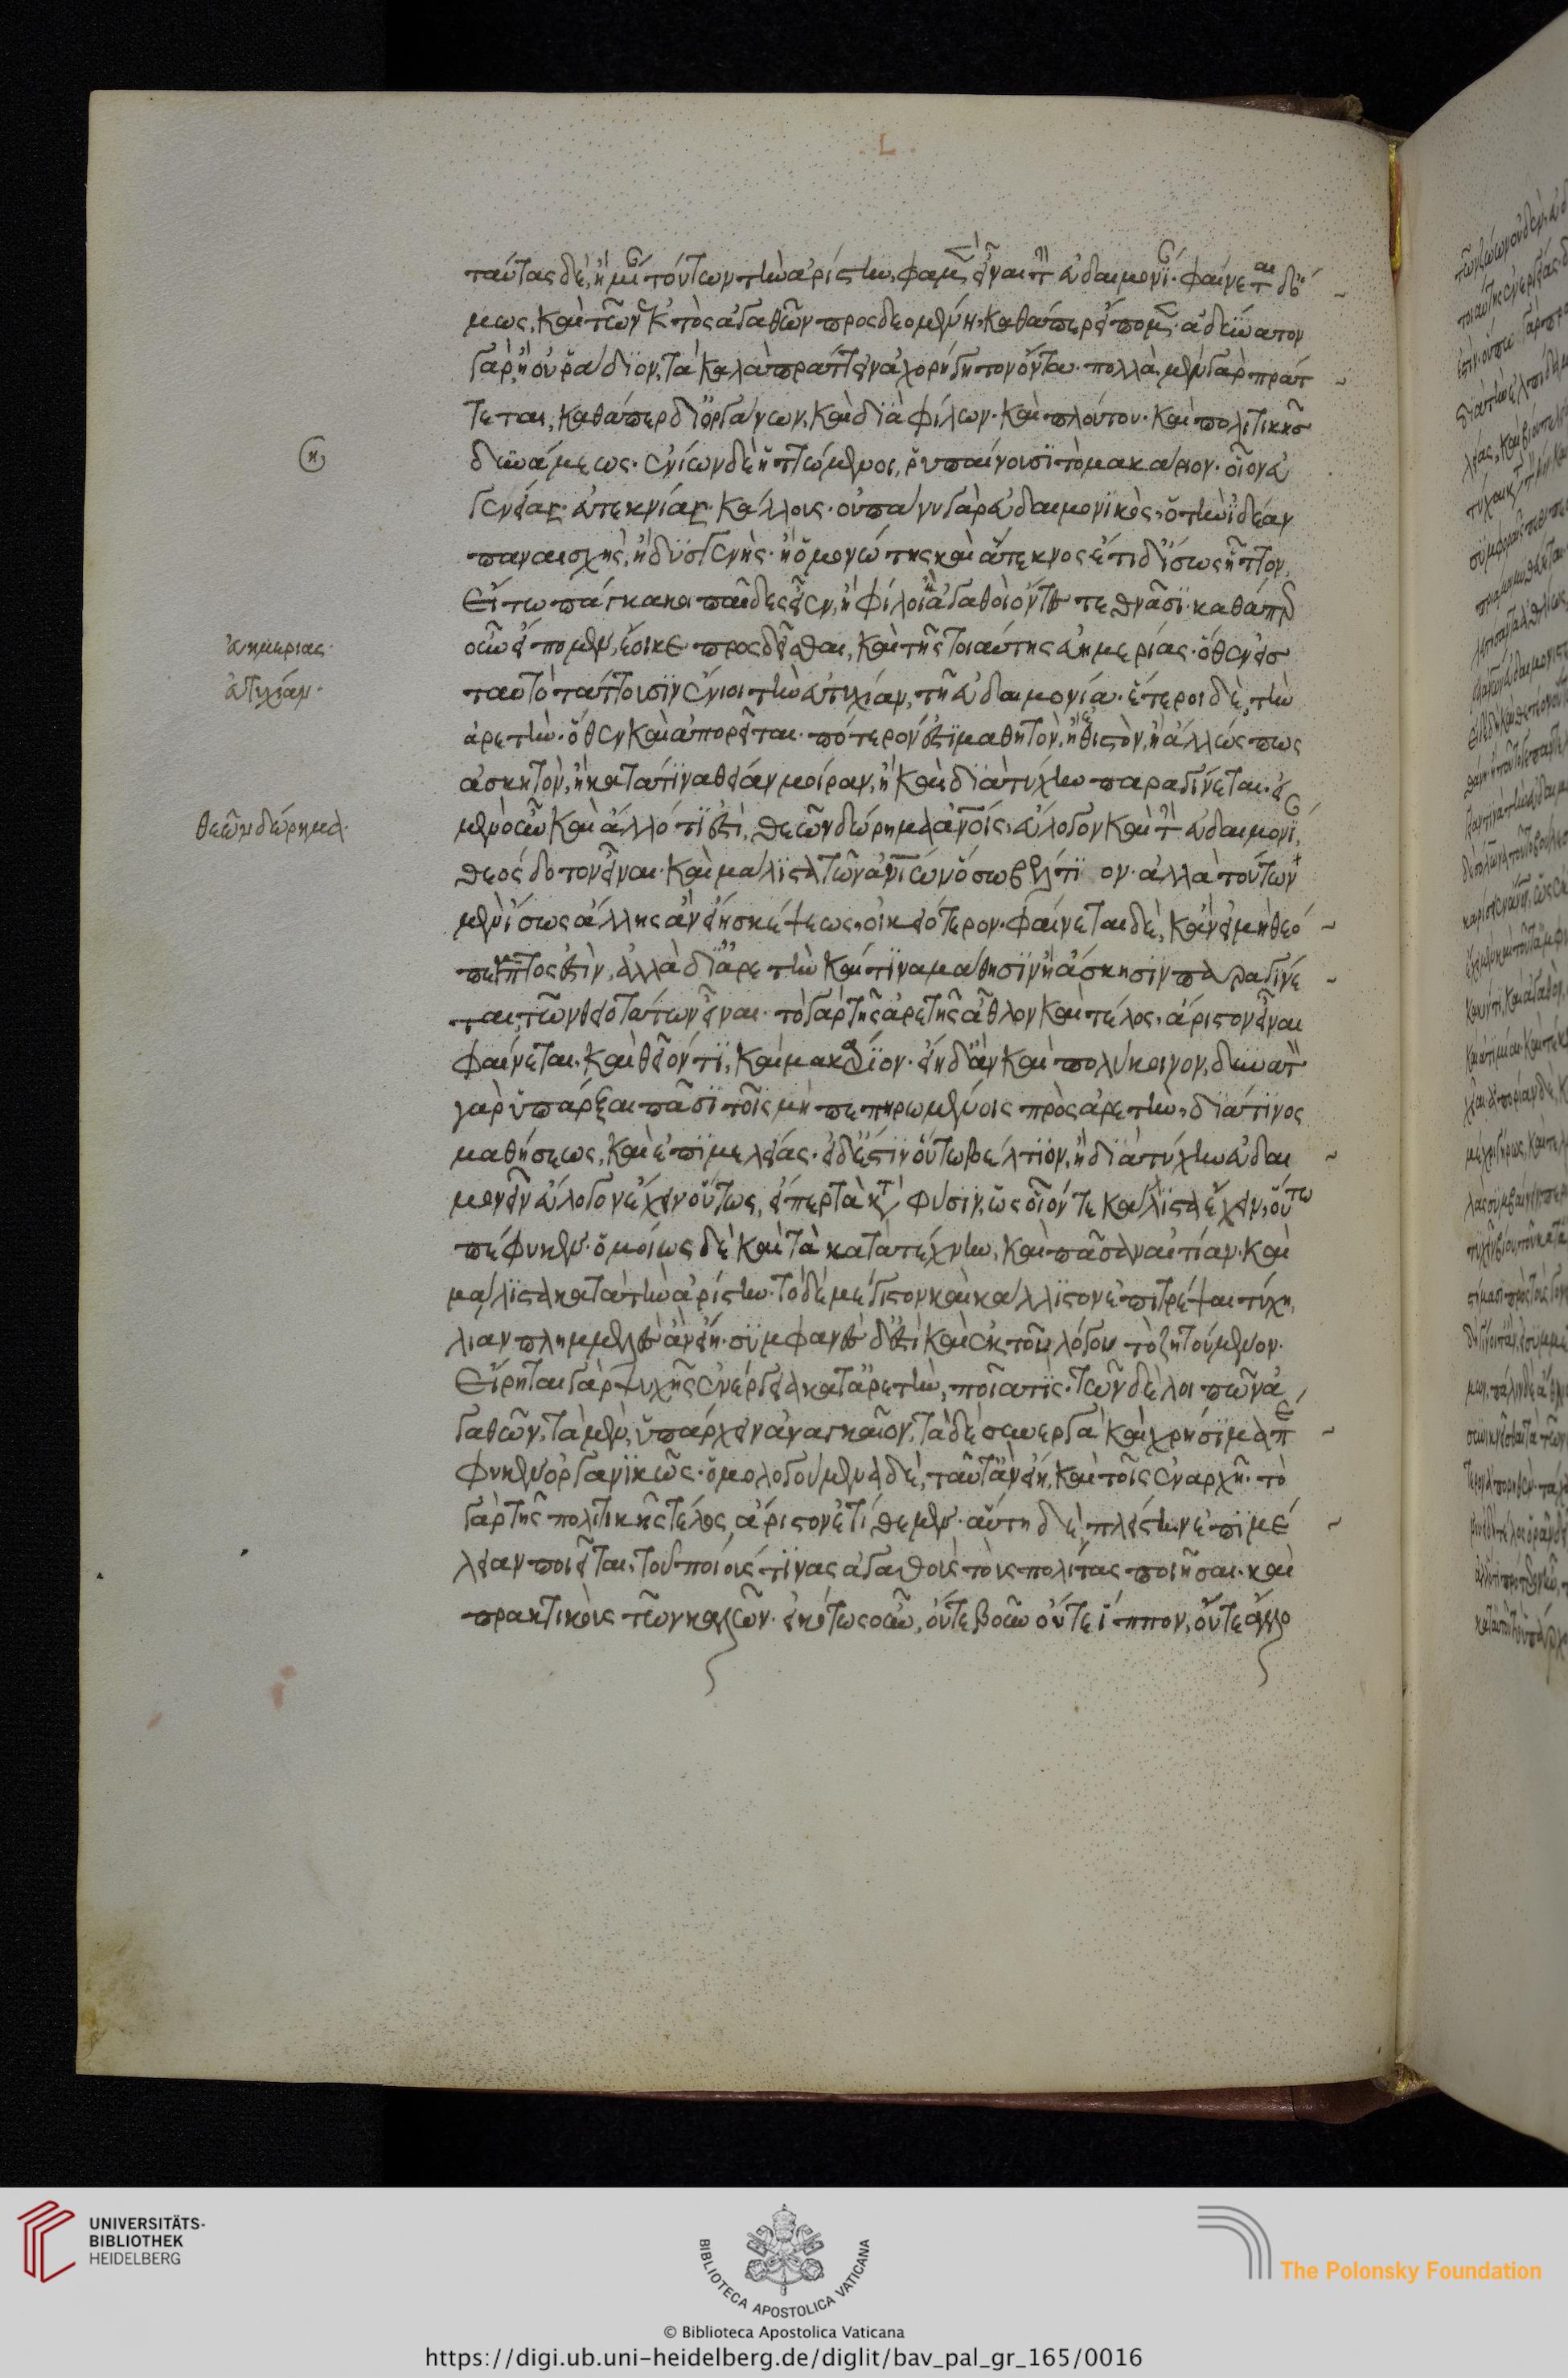 .L.
ταύτας δὲ, ἢ μίαν τούτων τὴν ἀρίστην, φαμὲν εἶναι τὴν εὐδαιμονίαν. φαίνεται δ' ὅ
μως, καὶ τῶν ἐκτὸς ἀγαθῶν προσδεομένη, καθάπερ εἴπομεν. ἀδύνατον
γὰρ, ἢ οὐ ῥάδϊον, τὰ καλὰ πράττειν ἀχορήγητον ὄντα. πολλὰ μὲν γὰρ πράτ
τεται, καθάπερ δϊ' ὀργάνων, καὶ δϊὰ φίλων. καὶ πλούτου. καὶ πολιτικῆσ
δυνάμεως. ἐνίων δὲ ἡττώμενοι, ῥυπαίνουσϊ τὸ μακάριον. οἷον εὐ
γενείας. εὐτεκνίας. κάλλους. οὐ πάνυ γὰρ εὐδαιμονϊκὸς, ὁ τὴν ἰδέαν
παναισχὴς, ἢ δϋσγενὴς. ἢ ὁ μονώτης καὶ ἄτεκνος ἔτι δ' ἴσως ἧττον,
Εἴ τω πάγκακοι παῖδες εἶεν, ἢ φίλοι ἢ ἀγαθοὶ ὄντες τεθνᾶσϊ. καθάπερ
οὖν εἴπομεν, ἔοικε προσδεῖσθαι, καὶ τῆς τοιαύτης εὐημερίας. ὅθεν εἰσ
ταυτὸ τάττουσϊν ἔνιοι τὴν εὐτυχίαν, τῆ εὐδαιμονία. ἕτεροι δὲ, τὴν
ἀρετὴν. ὅθεν καὶ ἀπορεῖται. πότερόν ἐστϊ μαθητὸν, ἢ ἐθιστὸν, ἢ ἄλλως πως
ἀσκητὸν, ἢ κατά τϊνα θείαν μοίραν, ἢ καὶ δϊὰ τύχην παραγίνεται. εἰ
μὲν οὖν καὶ ἄλλό τϊ ἐστὶ, θεῶν δώρημα ἀνοις, εὔλογον καὶ τὴν εὐδαιμονίαν,
θεόσδοτον εἶναι. καὶ μάλϊστα τῶν ἀνίνων ὅσω βέλτϊον. ἀλλὰ τοῦτο
μὲν ἴσως ἄλλης ἂν εἴη σκέψεως, οἰκειότερον. φαίνεται δὲ, κἂν εἰ μὴ θεό
πεμπτος ἐστὶν, ἀλλὰ δϊ' ἀρετὴν καί τϊνα μάθησϊν ἢ ἄσκησϊν παραγίνε
ται, τῶν θειοτάτων εἶναι. τὸ γὰρ τῆς ἀρετῆς ἆθλον καὶ τέλος, ἄριστον εἶναι
φαίνεται. καὶ θεῖόν τϊ, καὶ μακάρϊον. εἴη δ' ἂν καὶ πολύκοινον, δυνατὸν
γὰρ ὑπάρξαι πᾶσϊ τοῖς μὴ πεπηρωμένοις πρὸς ἀρετὴν, δϊά τϊνος
μαθήσεως, καὶ ἐπϊμελείας. εἰ δ' ἐστὶν οὕτω βέλτϊον, ἢ δϊὰ τύχην εὐδαι
μονεῖν εὔλογον ἔχειν οὕτως, εἴπερ τὰ κατὰ φύσϊν, ὡς οἷόν τε κάλλϊστα ἔχειν, οὕτω
πέφυκεν. ὁμοίως δὲ καὶ τὰ κατὰ τέχνην, καὶ πᾶσαν αἰτίαν. καὶ
μάλϊστα κατὰ τὴν ἀρίστην. τὸ δὲ μέγιστον καὶ κάλλϊστον ἐπιτρέψαι τύχη,
λίαν πλημμελὲς ἂν εἴη. σϋμφανὲς δ' ἐστὶ καὶ ἐκ τοῦ λόγου τὸ ζητούμενον.
Εἴρηται γὰρ ψυχῆς ἐνέργεια κατ' ἀρετὴν, ποῖα τϊς. τῶν δὲ λοιπῶν ἀ
γαθῶν, τὰ μὲν, ὑπάρχειν ἀναγκαῖον, τὰ δὲ συνεργὰ καὶ χρήσϊμα πέ
φυκεν ὀργανϊκῶς. ὁμολογούμενα δὲ, ταῦτ' ἂν εἴη, καὶ τοῖς ἐν ἀρχῆ. τὸ
γὰρ τῆς πολιτικῆς τέλος, ἄριστον ἐτίθεμεν. αὕτη δὲ, πλείστην ἐπϊμέ
λειαν ποιεῖται, τοῦ ποιούς τϊνας ἀγαθοὺς τοὺς πολίτας ποιῆσαι. καὶ
πρακτικοὺς τῶν καλῶν. εἰκότως οὖν, οὔτε βοῦν οὔτε ἵππον, οὔτε ἄλλο
η
εὐημερίας.
εὐτυχίαν.
θεῶν δώρημα.
UNIVERSITÄTS-
BIBLIOTHEK
HEIDELBERG
BIBLIOTECA APOSTOLICA VATICANA
© Biblioteca Apostolica Vaticana
The Polonsky Foundation
https://digi.ub.uni-heidelberg.de/diglit/bav_pal_gr_165/0016